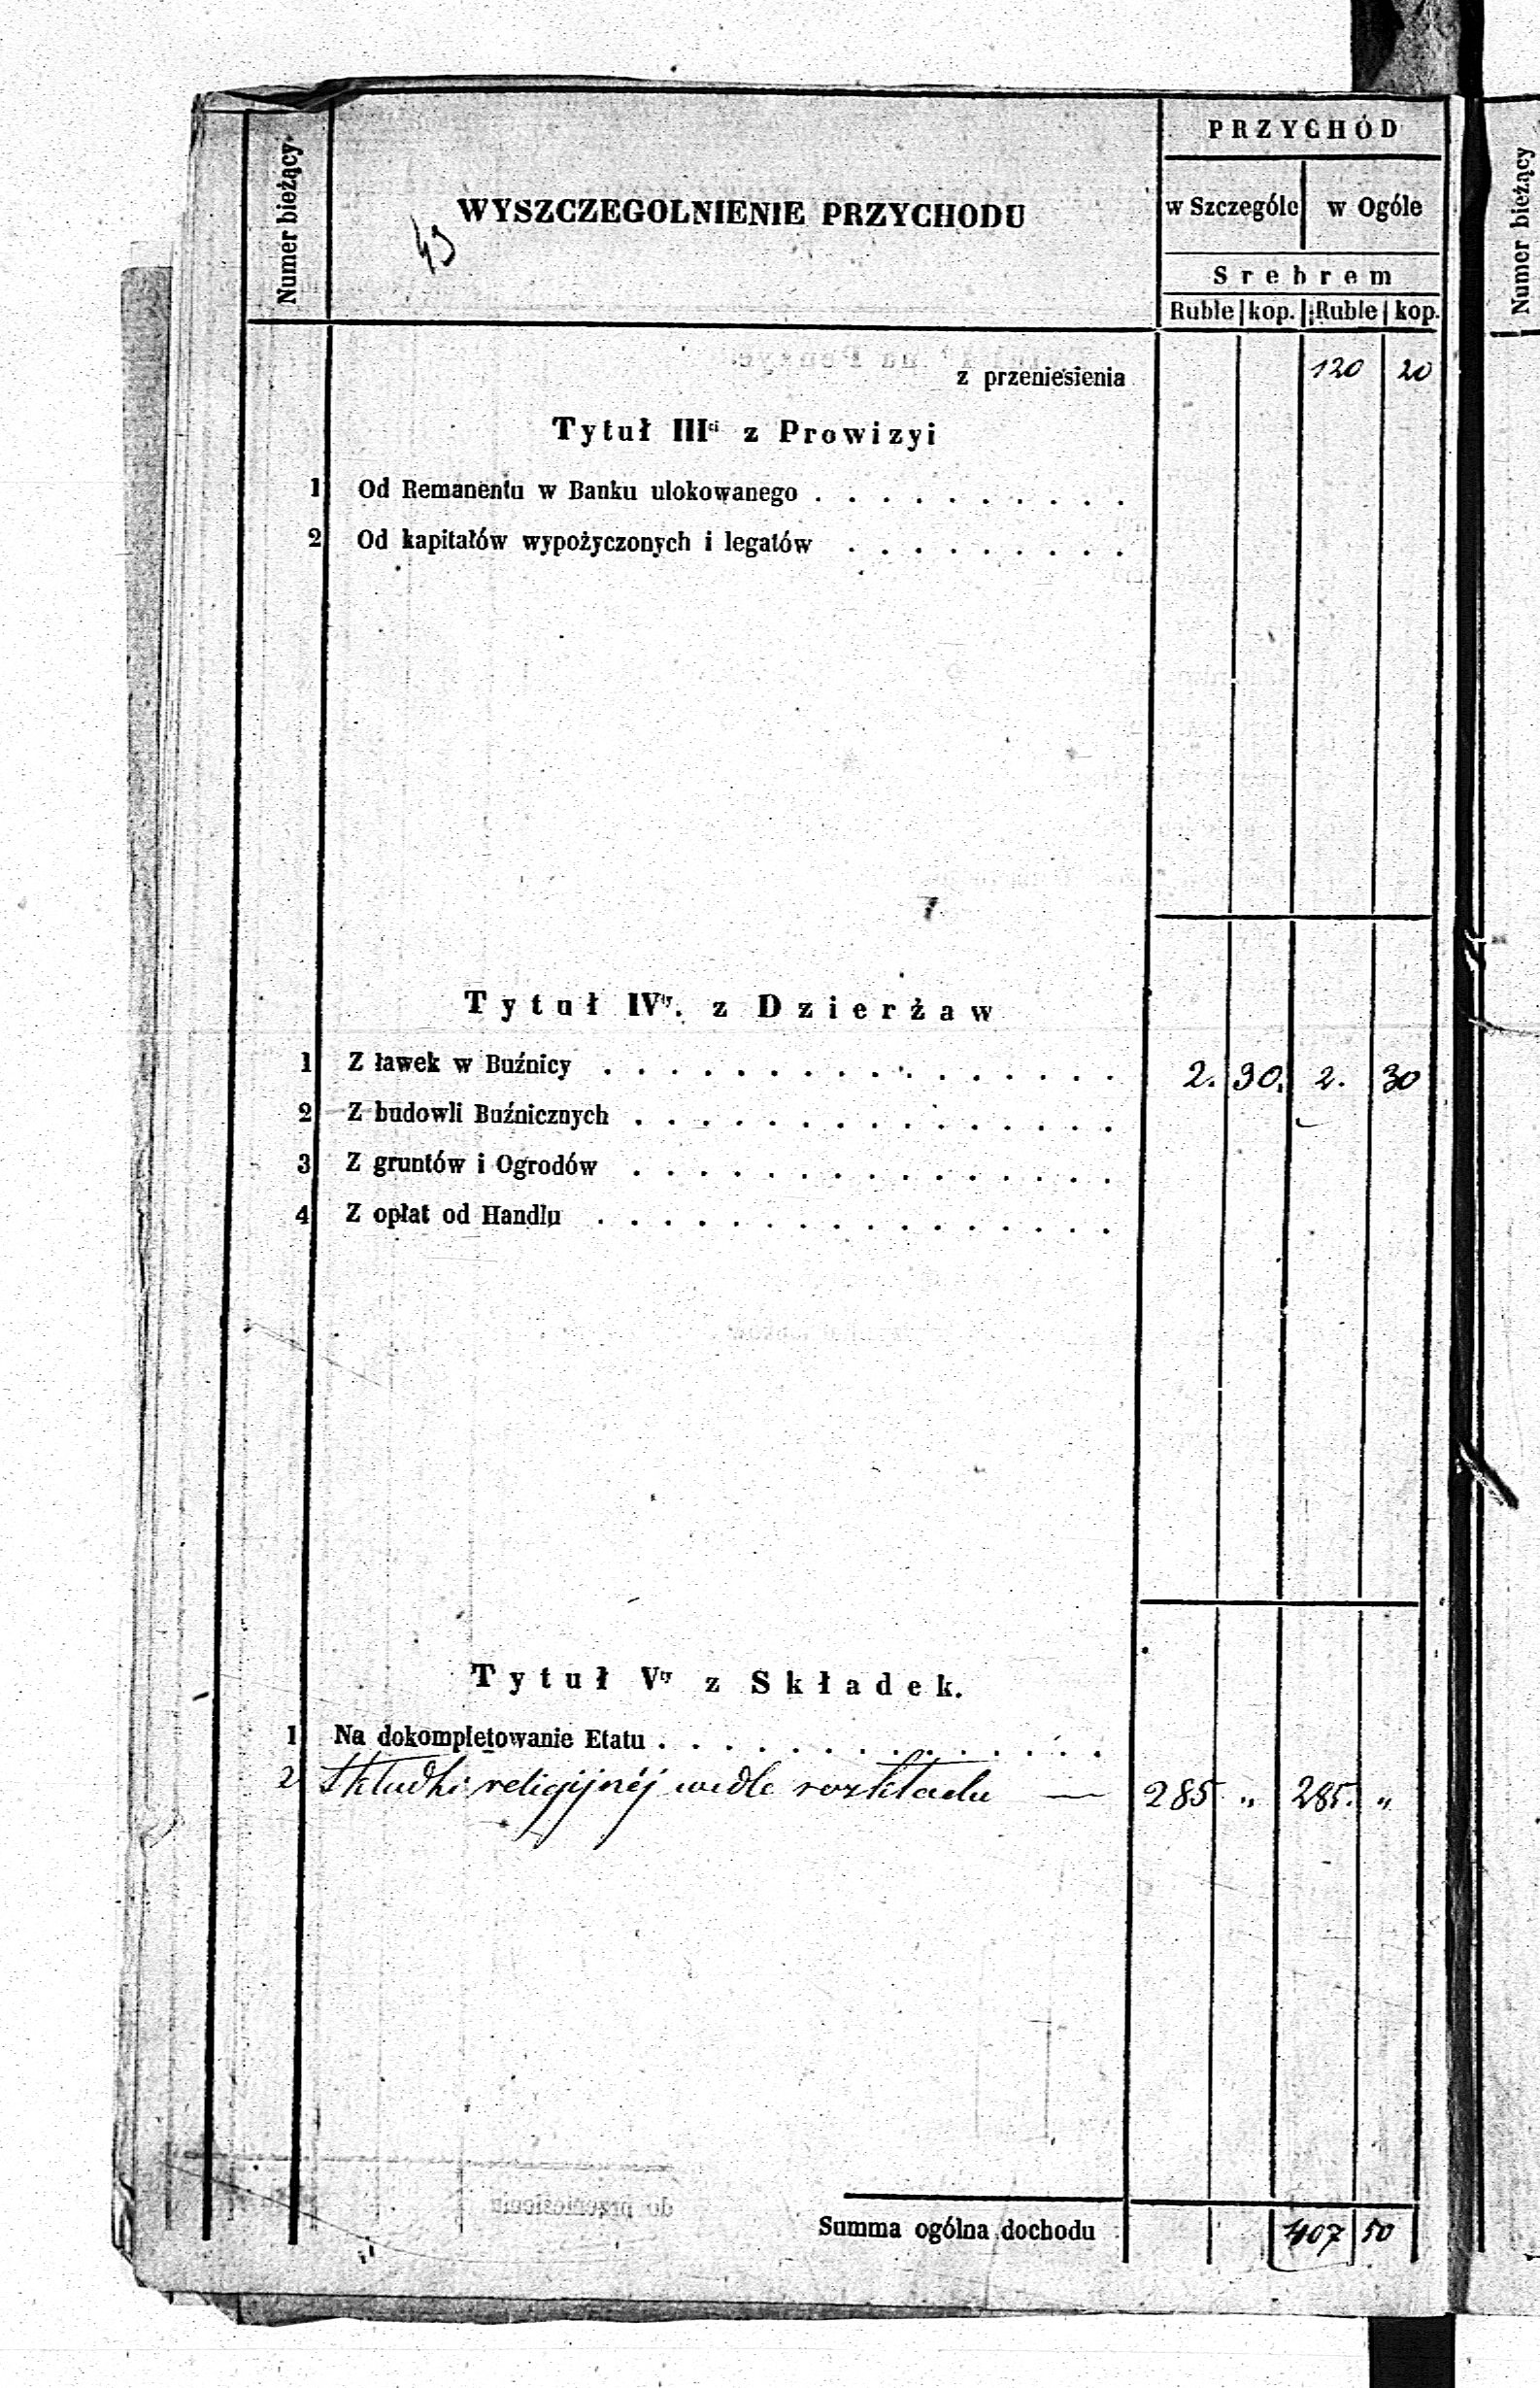 Numer bieżący
WYSZCZEGOLNIENIE PRZYCHODU
49
PRZYCHÓD
w Szczególe w Ogóle
Srebrem
Ruble kop. Ruble kop.
z przeniesienia 120 20
Tytuł IIIci z Prowizyi
1 Od Remanentu w Banku ulokowanego . . . . . . . . . .
2 Od kapitałów wypożyczonych i legatów . . . . . . . . .
Tytuł IVty. z Dzierżaw
1 Z ławek w Buźnicy . . . . . . . . . . . . . . . . 2. 30. 2. 30
2 Z budowli Buźnicznych . . . . . . . . . . . . . . .
3 Z gruntów i Ogrodów . . . . . . . . . . . . . . .
4 Z opłat od Handlu . . . . . . . . . . . . . . . .
Tytuł Vty z Składek.
1 Na dokompletowanie Etatu . . . . . . . . . . . . . .
2 Składki religijnéj wedle rozkładu — 285 " 285. "
do przeniesienia
Summa ogólna dochodu 407 50
Numer bieżący